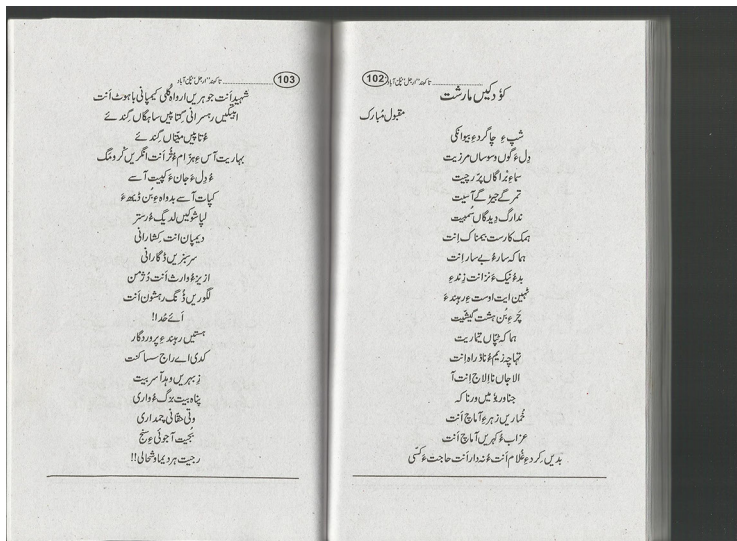 102
کوٗدکیں مارشت
مقبول مُبارک
شپ ءِ چاگردءِ بیوانکی
دِل ءَ گوں وسوساں مرزیت
سماءِ بُراگاں پرّ رچیت
تمرگے جیڑگے آسیت
ندارگ دیدگاں سُمبیت
ہمک کارست بیمناک اِنت
ہما کہ سارءُ بے سار اِنت
بدءُ نیک ءَ نزانت زِندءِ
ہمین ایت اوست ءِ رہبندءَ
چَرءِ بُن ہشت گیشّیت
ہما کہ جپّاں تماریت
تہاچہ زیم ءُ ناڈراہ اِنت
الاجاں نالِلاج اِنت آ
جناور ڈولیں ورنا کہ
خُماریں زہرءِ آماچ اَنت
عزاب ءُ کہریں آماچ اَنت
بدیں کِردءِ غُلام اَنت ءُ نہ دار اَنت حاجت ءَ کسّی
103
شہید اَنت جوہریں ارواہ گلی کیمپانی باہوٹ اَنت
ابیتکیں رہسرانی کتاپیں ساہگاں گِندے
ءُ تاپیں میتاں گِندے
بہاریت آس ءِ ہژام ءُ خُر اَنت انگریں گرومگ
ءُ دِل ءَ جان ءَ کپیت آسے
کپات آسے بدواہ ءِ بُن ڈیہہ ءَ
لپاشوکیں لدیگ ءُ رستر
دیمپان انت کِشارانی
سرسبزیں ڈگارانی
ازیزءُ وارث اَنت دُژمن
لگوریں ڈُنگ رہشون اَنت
اَئے خُدا!
ہستیں رہبندءِ پروردگار
کدی اے راج سسا کنت
زہریں وہد آسر بیت
پناہ بیت بزگ ءُ واری
وتی حقانی چمداری
بُجیت آجوئی ءِ سنج
رجیت ہردیما وشحالی!!